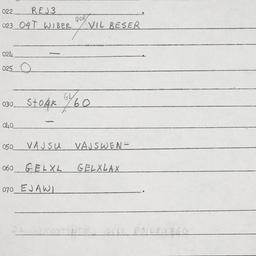 022 REJ3
023 OGT WIBER / VIL BESER
024 —
025 O
030 STO4R / 60
040 —
050 VAJSU VAJSWEN-
060 GELXL GELXLAX
070 EJAWI